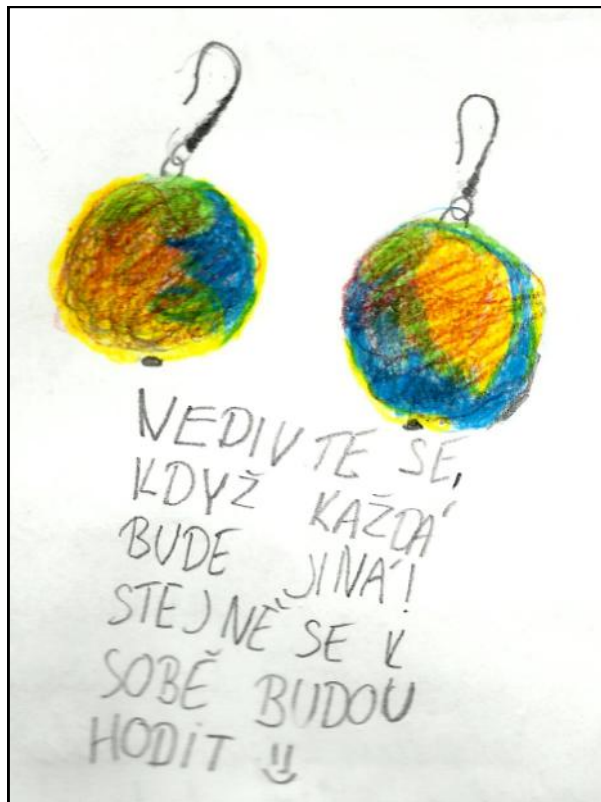 NEDIVTE SE,
KDYŽ KAŽDÁ
BUDE JINÁ!
STEJNĚ SE K
SOBĚ BUDOU
HODIT